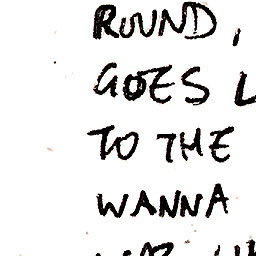 ROUND,
GOES
TO THE
WANNA